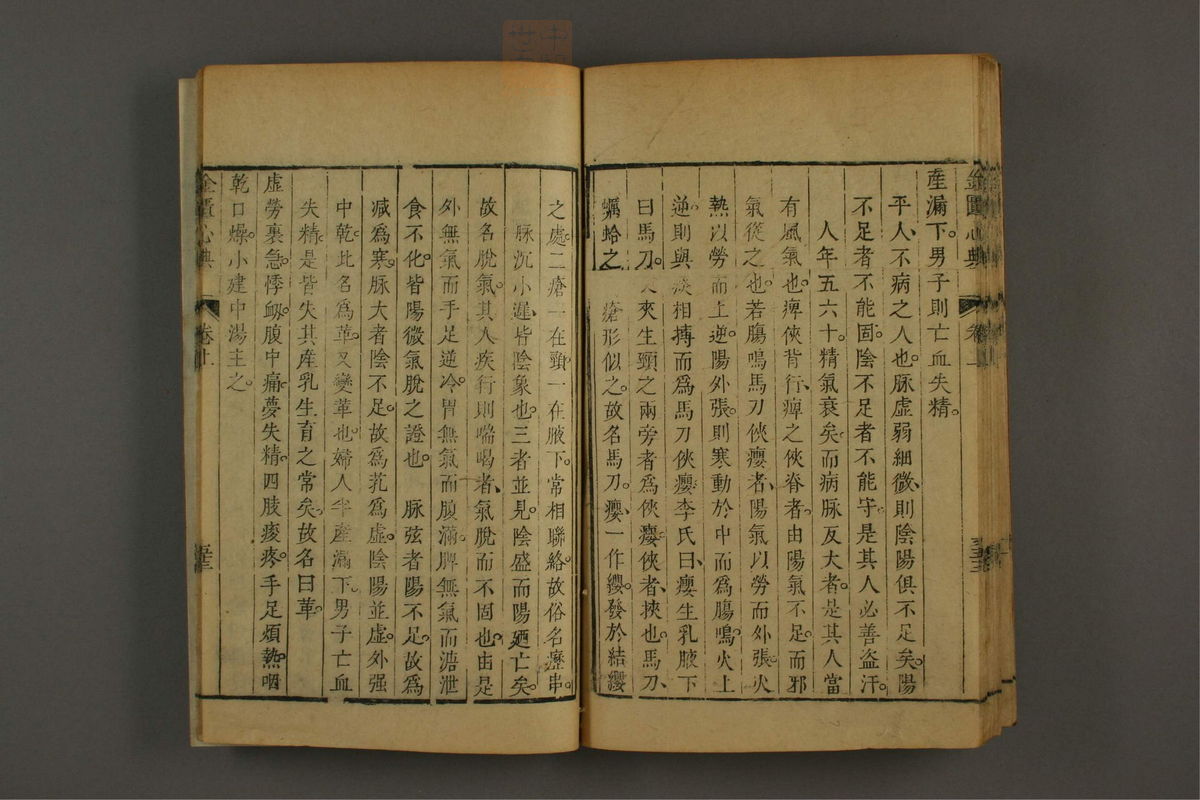 金匱心典
卷上
産漏下。男子則亡血失精。
平人不病之人也。脈虛弱細微、則陰陽俱不足矣。陽
不足者不能固。陰不足者不能守。是其人必善盗汗。
人年五六十。精氣衰矣。而病脈反大者。是其人當
有風氣也。痺俠背行、痺之俠脊者。由陽氣不足。而邪
氣從之也。若腸鳴馬刀俠癭者、陽氣以勞而外張。火
熱以勞而上逆。陽外張。則寒動於中而爲腸鳴。火上
逆。則與痰相搏而爲馬刀俠癭。李氏曰、癭生乳腋下
曰馬刀。又夾生頸之兩旁者爲俠癭。俠者、挾也。馬刀、
蠣蛤之
瘡形似之。故名馬刀。癭一作纓。發於結纓
之處。二瘡一在頸。一在腋下。常相聯絡。故俗名癧串。
脈沉小遲。皆陰象也。三者並見。陰盛而陽廼亡矣。
故名脫氣。其人疾行則喘喝者、氣脫而不固也。由是
外無氣而手足逆冷。胃無氣而腹滿。脾無氣而溏泄
食不化。皆陽微氣脫之證也。　脈弦者陽不足。故爲
減爲寒。脈大者陰不足。故爲芤爲虛。陰陽並虛。外强
中乾。此名爲革。又變革也。婦人半產漏下。男子亡血
失精。是皆失其產乳生育之常矣。故名曰革。
虛勞裏急。悸衂。腹中痛。夢失精。四肢痠疼。手足煩熱。咽
乾口燥。小建中湯主之。
金匱心典
卷上